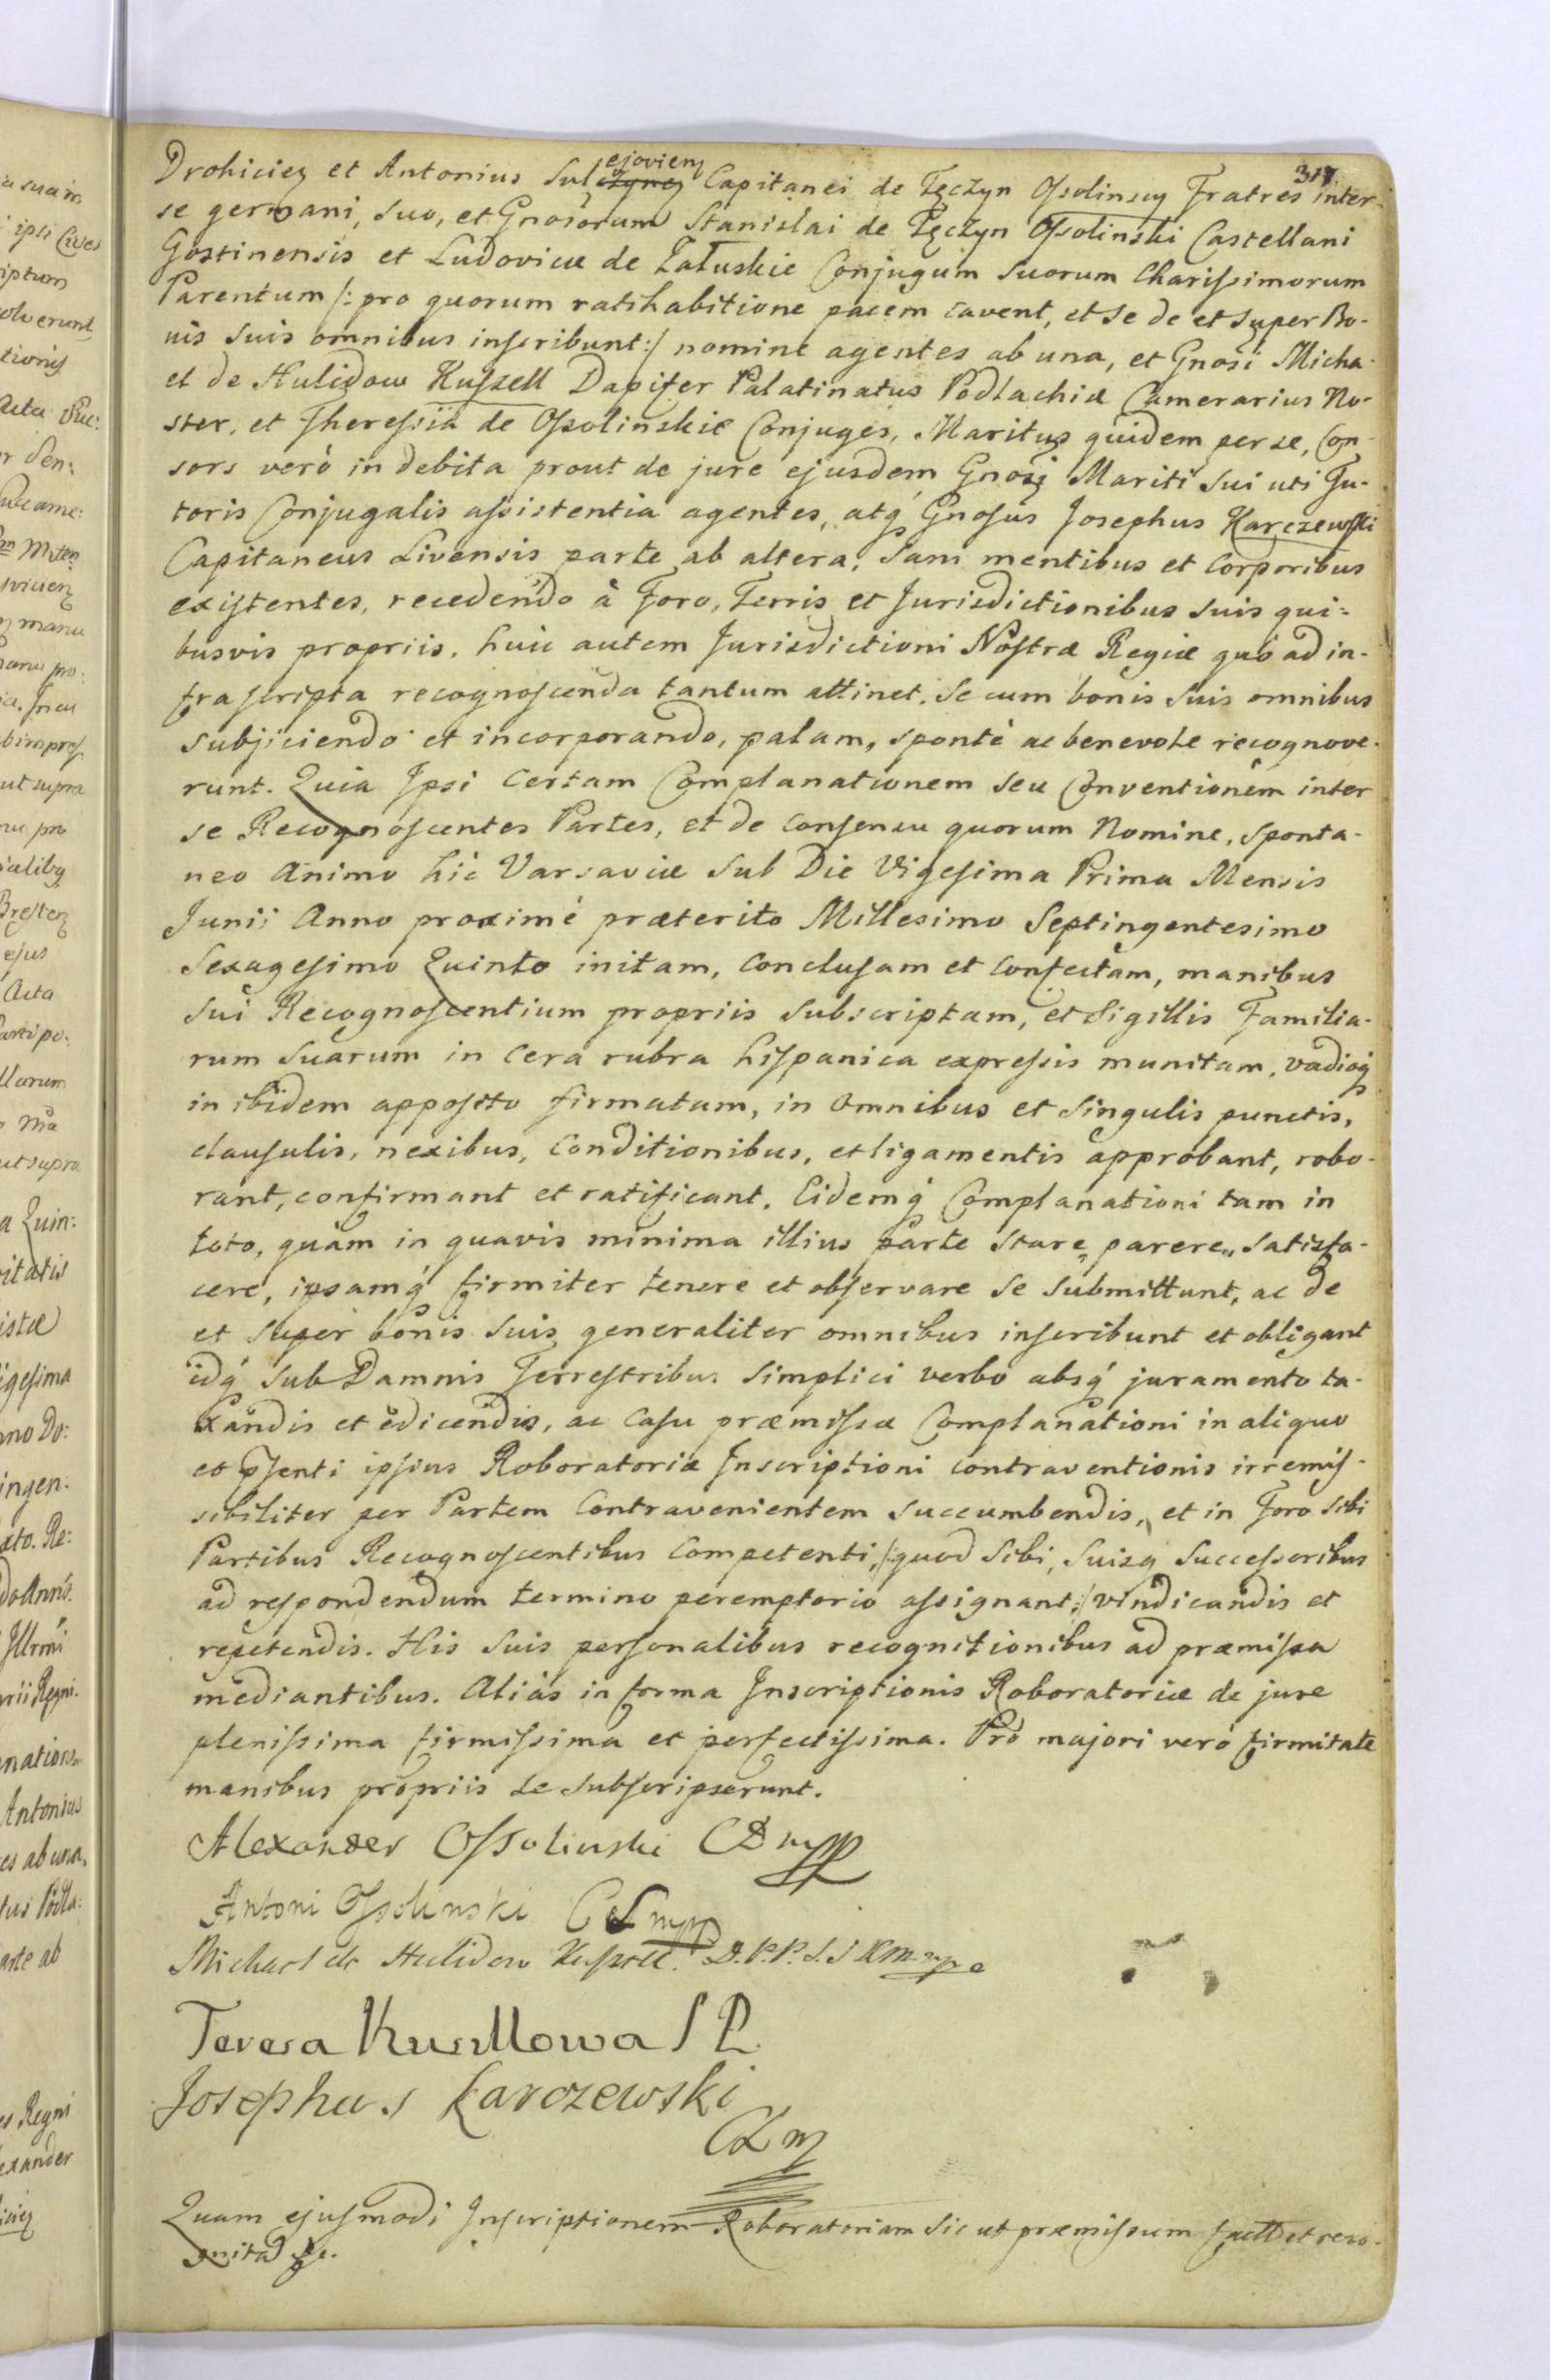 317.
Drohicien et Antonius Sulejovien Capitanei de Tęczyn Ossolinscy Fratres inter
se germani, suo, et Gnosorum Stanislai de Tęczyn Ossolinski Castellani
Gostinensis et Ludovicæ de Załuskie Conjugum Suorum Charissimorum
Parentum /: pro quorum ratihabitione pacem cavent, et se de et super Bo-
nis suis omnibus inscribunt :/ nomine agentes ab una, et Gnosi Micha-
el de Hulidow Kuszell Dapifer Palatinatus Podlachiæ Camerarius No-
ster, et Theressia de Ossolinskie Conjuges, Maritus quidem per se, Con-
sors verò in debita prout de jure ejusdem Gnosi Mariti sui uti Tu-
toris Conjugalis assistentia agentes, atq́ Gnosus Josephus Karczewski
Capitaneus Livensis parte ab altera; Sani mentibus et Corporibus
existentes, recedendo à Foro, Terris et Jurisdictionibus suis qui-
busvis propriis, huic autem Jurisdictioni Nostræ Regiæ quò ad in-
frascripta recognoscenda tantum attinet, se cum bonis suis omnibus
subjiciendo et incorporando, palam, spontè ac benevole recognove-
runt. Quia Ipsi Certam Complanationem seu Conventionem inter
se Recognoscentes Partes, et de Consensu quorum Nomine, sponta-
neo Animo hic Varsaviæ sub Die Vigesima Prima Mensis
Junii Anno proximè præterito Millesimo Septingentesimo
Sexagesimo Quinto initam, conclusam et confectam, manibus
sui Recognoscentium propriis subscriptam, et Sigillis Familia-
rum Suarum in Cera rubra hispanica expressis munitam, vadioq́
in ibidem apposito firmatam, in omnibus et singulis punctis,
clausulis, nexibus, Conditionibus, et ligamentis approbant, robo-
rant, confirmant et ratificant. Eidemq́ Complanationi tam in
toto, quàm in quavis minima illius parte Stare, parere, satisfa-
cere, ipsamq́ firmiter tenere et observare se submittunt, ac de
et super bonis suis generaliter omnibus inscribunt et obligant
idq́ sub Damnis Terrestribus simplici verbo absq́ juramento ta-
xandis et edicendis, ac Casu præmissæ Complanationi in aliquo
et pŝenti ipsius Roboratoriæ Inscriptioni contraventionis irremis-
sibiliter per Partem Contravenientem succumbendis, et in Foro sibi
Partibus Recognoscentibus Competenti, /:quod sibi, suisq́ Successoribus
ad respondendum termino peremptorio assignant:/ vindicandis et
repetendis. His suis personalibus recognitionibus ad præmissa
mediantibus. Aliàs in forma Inscriptionis Roboratoriæ de jure
plenissima firmissima et perfectissima. Pro majori verò firmitate
manibus propriis se subscripserunt.
Alexander Ossolinski CD mpp
Antoni Ossolinski CS mpp
Michael de Hulidow Kuszell. D.P.P. S.J.K.M. mpp
Teresa Kuszllowa S P.
Josephus Karczewski
CL m
Quam ejusmodi Inscriptionem Roboratoriam sic ut præmissum factã et reco-
gnitã &c.